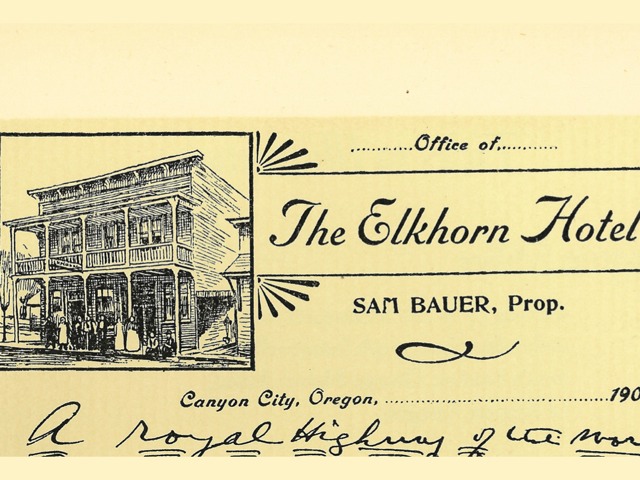 ............Office of............
The Elkhorn Hotel
SAM BAUER, Prop.
Canyon City, Oregon, ................................................190
A royal Highway of the